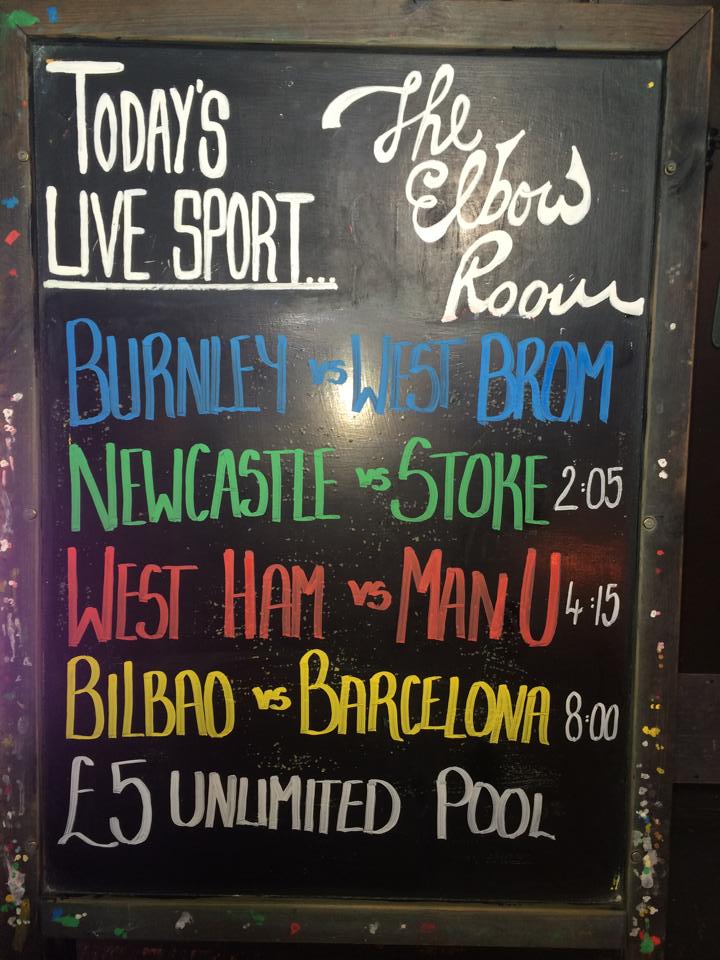 TODAY'S
LIVE SPORT...
The
Elbow
Room
BURNLEY vs WEST BROM
NEWCASTLE vs STOKE 2:05
WEST HAM vs MAN U 4:15
BILBAO vs BARCELONA 8:00
£5 UNLIMITED POOL